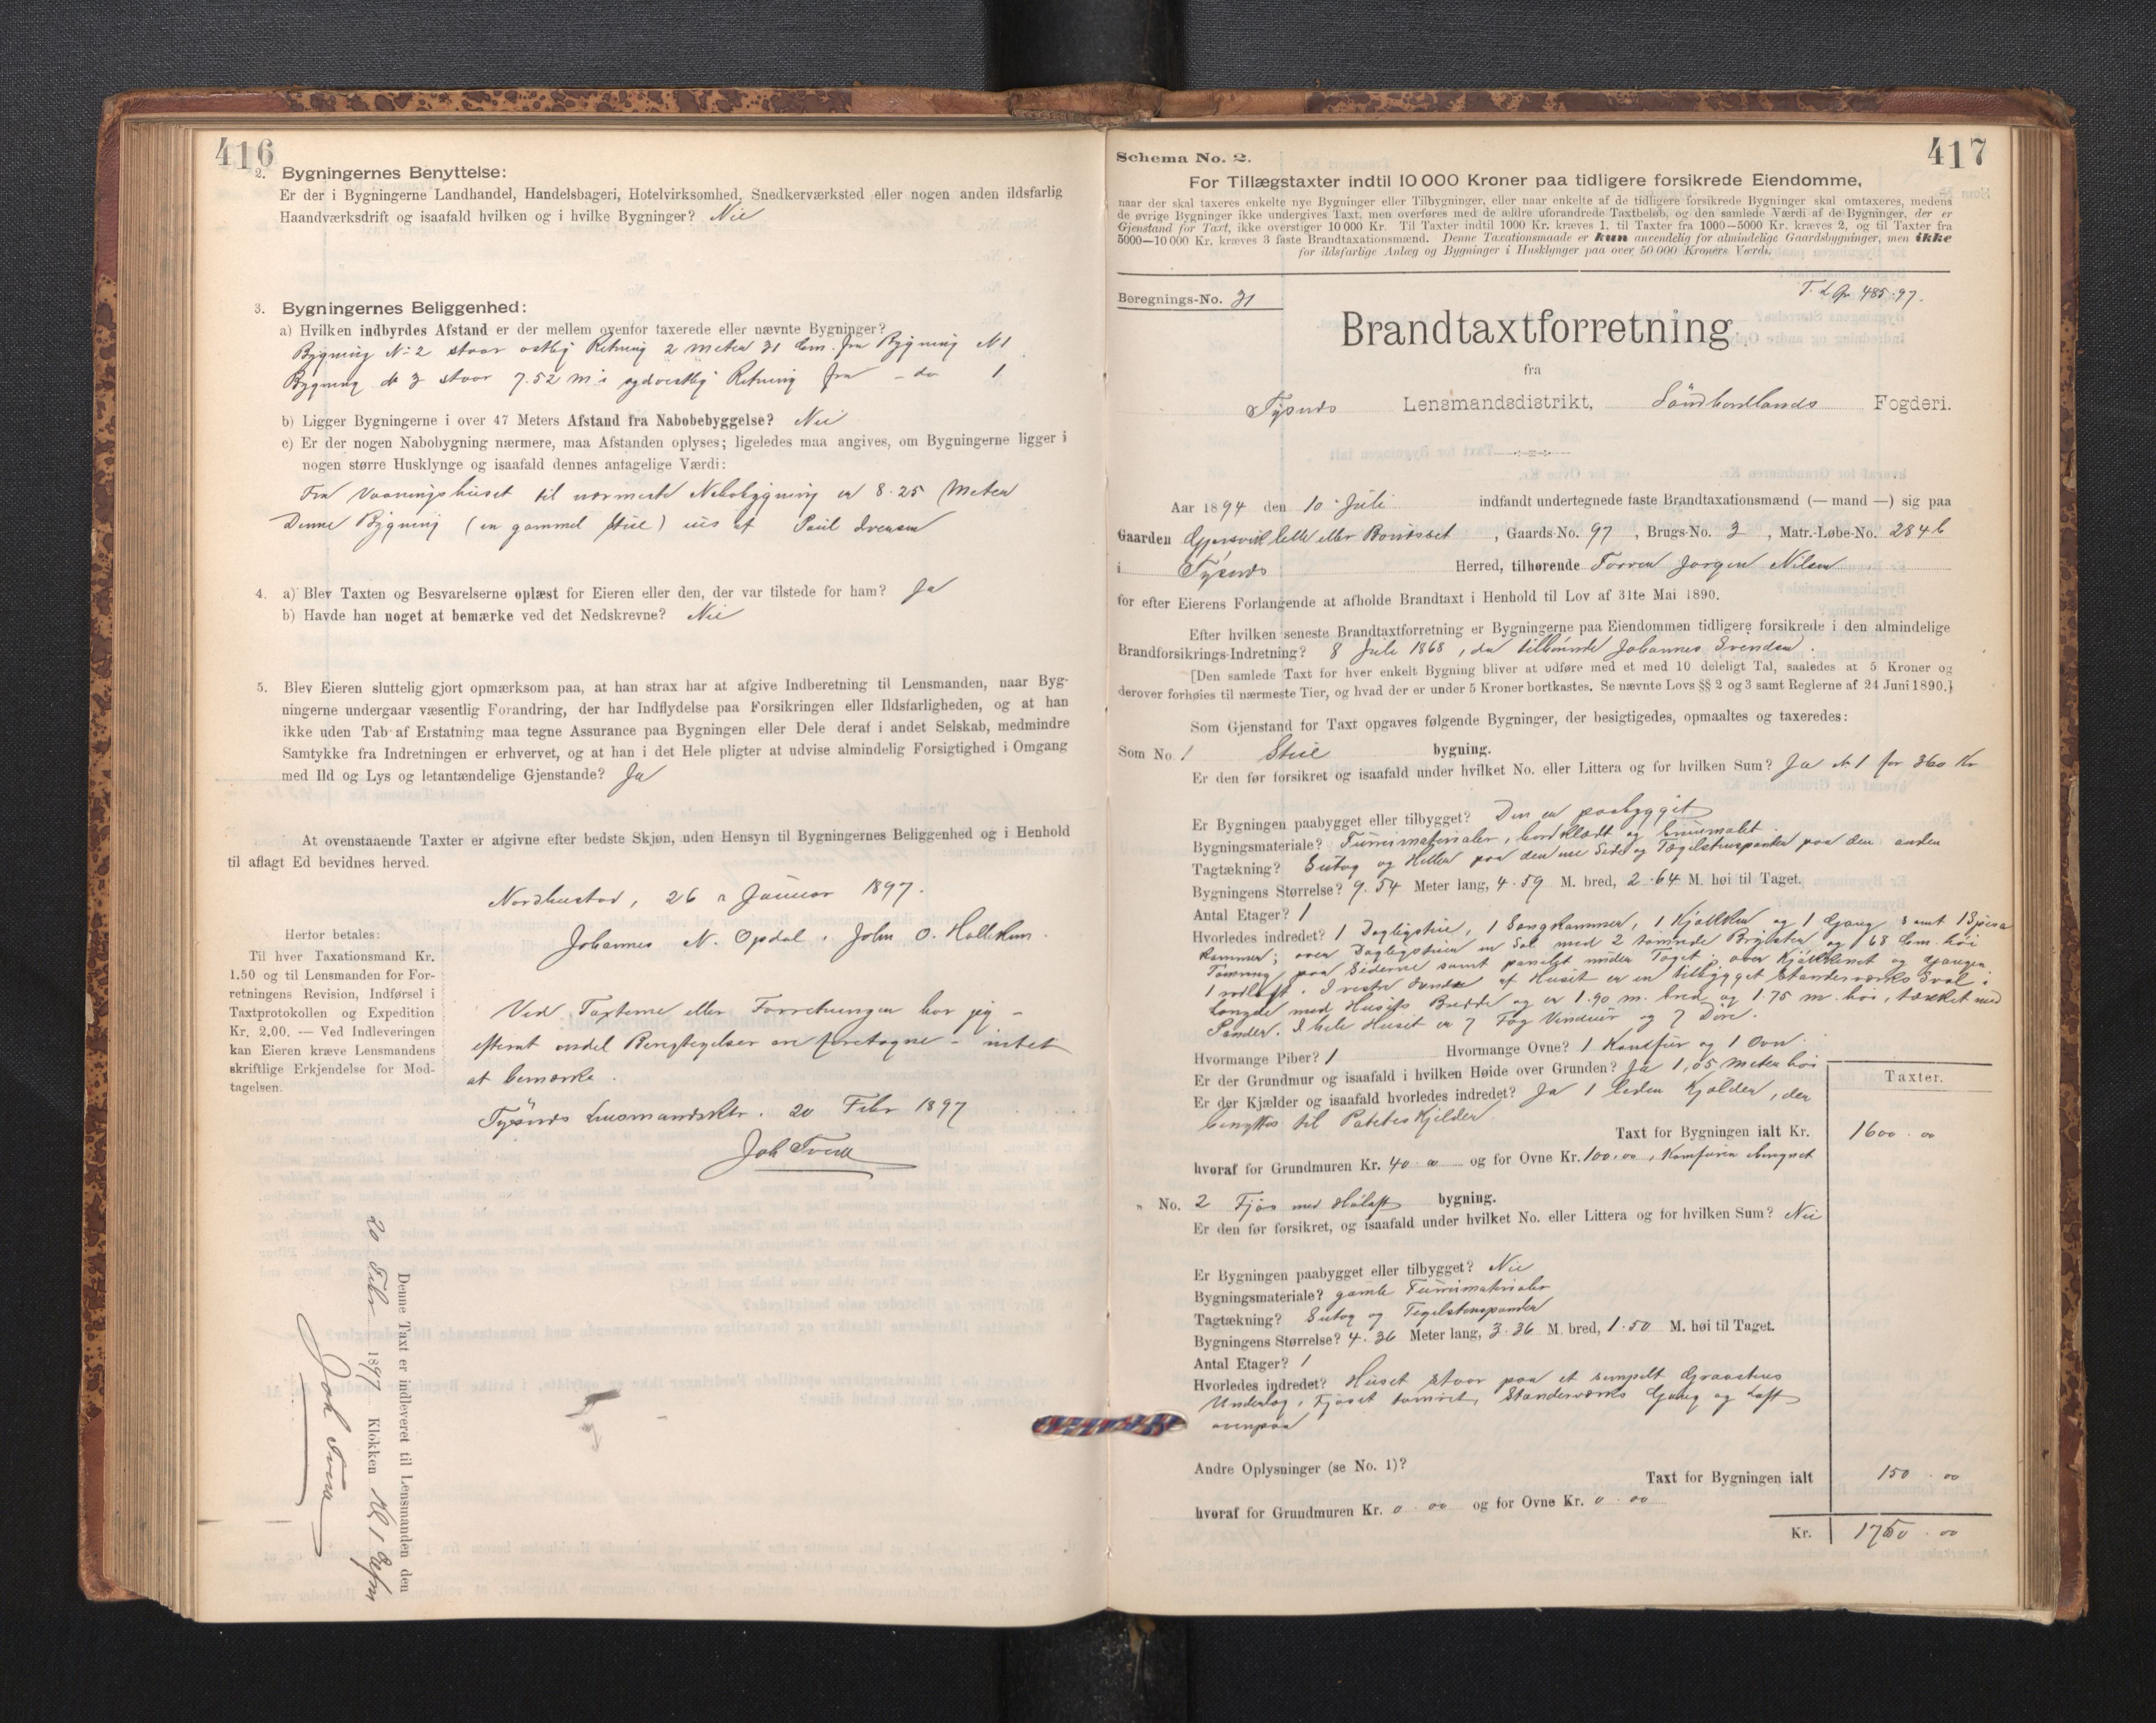 416
2. Bygningernes Benyttelse:
Er der i Bygningerne Landhandel, Handelsbageri, Hotelvirksomhed, Snedkerværksted eller nogen anden ildsfarlig
Haandværksdrift og isaafald hvilken og i hvilke Bygninger? Nei
3. Bygningernes Beliggenhed:
a) Hvilken indbyrdes Afstand er der mellem ovenfor taxerede eller nævnte Bygninger?
Bygning No 2 staar ostlig Retning 2 meter 31 Cm. fra Bygning No 1
Bygning do 3 staar 7.52 m i sydvestlig Retning fra - do 1
b) Ligger Bygningerne i over 47 Meters Afstand fra Nabobebyggelse? Nei
c) Er der nogen Nabobygning nærmere, maa Afstanden oplyses; ligeledes maa angives, om Bygningerne ligger i
nogen større Husklynge og isaafald dennes antagelige Værdi:
Fra Vaaningshuset til nærmeste Nabobygning er 8.25 Meter
Denne Bygning (en gammel Stue) eies af Poul Iversen
4. a) Blev Taxten og Besvarelserne oplæst for Eieren eller den, der var tilstede for ham? Ja
b) Havde han noget at bemærke ved det Nedskrevne? Nei
5. Blev Eieren sluttelig gjort opmærksom paa, at han strax har at afgive Indberetning til Lensmanden, naar Byg-
ningerne undergaar væsentlig Forandring, der har Indflydelse paa Forsikringen eller Ildsfarligheden, og at han
ikke uden Tab af Erstatning maa tegne Assurance paa Bygningen eller Dele deraf i andet Selskab, medmindre
Samtykke fra Indretningen er erhvervet, og at han i det Hele pligter at udvise almindelig Forsigtighed i Omgang
med Ild og Lys og letantændelige Gjenstande? Ja
At ovenstaaende Taxter er afgivne efter bedste Skjøn, uden Hensyn til Bygningernes Beliggenhed og i Henhold
til aflagt Ed bevidnes herved.
Nordhustad, 26 Januar 1897.
Johannes N. Opdal. John O. Hallekam.
Herfor betales:
Til hver Taxationsmand Kr.
1.50 og til Lensmanden for For-
retningens Revision, Indførsel i
Taxtprotokollen og Expedition
Kr. 2.00. — Ved Indleveringen
kan Eieren kræve Lensmandens
skriftlige Erkjendelse for Mod-
tagelsen.
Ved Taxterne eller Forretningen har jeg -
efterat endel Berigtigelser ere foretagne - intet
at bemærke.
Tysnes Lensmandsktr. 20 Febr 1897
Joh Tveit
Denne Taxt er indleveret til Lensmanden den
20 Febr 1897 Klokken Kl 1 Efm
Joh Tveit
417
Schema No. 2.
For Tillægstaxter indtil 10 000 Kroner paa tidligere forsikrede Eiendomme,
naar der skal taxeres enkelte nye Bygninger eller Tilbygninger, eller naar enkelte af de tidligere forsikrede Bygninger skal omtaxeres, medens
de øvrige Bygninger ikke undergives Taxt, men overføres med de ældre uforandrede Taxtbeløb, og den samlede Værdi af de Bygninger, der er
Gjenstand for Taxt, ikke overstiger 10 000 Kr. Til Taxter indtil 1000 Kr. kræves 1, til Taxter fra 1000—5000 Kr. kræves 2, og til Taxter fra
5000—10 000 Kr. kræves 3 faste Brandtaxationsmænd. Denne Taxationsmaade er kun anvendelig for almindelige Gaardsbygninger, men ikke
for ildsfarlige Anlæg og Bygninger i Husklynger paa over 50 000 Kroners Værdi.
Beregnings-No. 31
485.97.
Brandtaxtforretning
fra
Tysnes Lensmandsdistrikt, Søndhordlands Fogderi.
Aar 1894 den 10 Juli indfandt undertegnede faste Brandtaxationsmænd (— mand —) sig paa
Gaarden Gjersvik lille eller Bondeset, Gaards-No. 97, Brugs-No. 3, Matr.-Løbe-No. 284 b
i Tysnes Herred, tilhørende Torren Jorgen Nilsen
for efter Eierens Forlangende at afholde Brandtaxt i Henhold til Lov af 31te Mai 1890.
Efter hvilken seneste Brandtaxtforretning er Bygningerne paa Eiendommen tidligere forsikrede i den almindelige
Brandforsikrings-Indretning? 8 Juli 1868, da tilhørende Johannes Svendsen.
[Den samlede Taxt for hver enkelt Bygning bliver at udføre med et med 10 deleligt Tal, saaledes at 5 Kroner og
derover forhøies til nærmeste Tier, og hvad der er under 5 Kroner bortkastes. Se nævnte Lovs §§ 2 og 3 samt Reglerne af 24 Juni 1890.]
Som Gjenstand for Taxt opgaves følgende Bygninger, der besigtigedes, opmaaltes og taxeredes:
Som No. 1 Stue bygning.
Er den før forsikret og isaafald under hvilket No. eller Littera og for hvilken Sum? Ja No 1 for 360 Kr
Er Bygningen paabygget eller tilbygget? Den er paabygget
Bygningsmateriale? Furrumaterialer, bordklædt og brunmalet
Tagtækning? Sutag og Heller paa den ene Side og Tegelstenspander paa den anden
Bygningens Størrelse? 9.54 Meter lang, 4.59 M. bred, 2.64 M. høi til Taget.
Antal Etager? 1
Hvorledes indredet? 1 Dagligstue, 1 Sengkammer, 1 Kjøkken og 1 Gang samt 1 Spise
kammer; over Dagligstuen en Sal med 2 tømrede Bryster og 68 Cm. høi
Tømring paa Siderne samt panelet under Taget; over Kjøkkenet og Gangen
1 rodloft. I vestre Ende af Huset er en tilbygget Standerværks Sval i
Længde med Husets Bredde og er 1.90 m. bred og 1.75 m. høi, tækket med
Pander. I hele Huset er 7 Fag Vinduer og 7 Døre.
Hvormange Piber? 1 Hvormange Ovne? 1 Komfur og 1 Ovn.
Er der Grundmur og isaafald i hvilken Høide over Grunden? Ja 1,05 Meter høi
Er der Kjælder og isaafald hvorledes indredet? Ja 1 liden Kjælder, der
benyttes til Potetes Kjelder.
Taxter.
Taxt for Bygningen ialt Kr. 1600.00
hvoraf for Grundmuren Kr. 40.00 og for Ovne Kr. 100.00, Komfuren iberegnet
" No. 2 Fjøs med Høloft bygning.
Er den før forsikret, og isaafald under hvilket No. eller Littera og for hvilken Sum? Nei
Er Bygningen paabygget eller tilbygget? Nei
Bygningsmateriale? gamle Furrumaterialer
Tagtækning? Sutag og Tegelstenspander
Bygningens Størrelse? 4.36 Meter lang, 3.36 M. bred, 1.50 M. høi til Taget.
Antal Etager? 1
Hvorledes indredet? Huset staar paa et simpelt Graastens
Underlag, Fjøset tømret, Standerværks Gang og Loft
ovenpaa
Andre Oplysninger (se No. 1)?
Taxt for Bygningen ialt 150.00
hvoraf for Grundmuren Kr. 0.00 og for Ovne Kr. 0.00
Kr. 1750.00